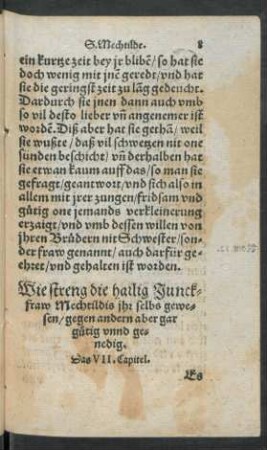 S. Mechtilde. 8
ein kurtze zeit bey jr blibẽ/ so hat sie
doch wenig mit jnẽ geredt/ vnd hat
sie die geringst zeit zu lãg gedeucht.
Dardurch sie jnen dann auch vmb
so vil desto lieber vñ angenemer ist
wordẽ. Diß aber hat sie gethã/ weil
sie wußte/ daß vil schwetzen nit one
sünden beschicht/ vñ derhalben hat
sie etwan kaum auff das/ so man sie
gefragt/ geantwort/ vnd sich also in
allem mit jrer zungen/ fridsam vnd
gütig one jemands verkleinerung
erzaigt/ vnd vmb dessen willen von
jhren Brüdern nit Schwester/ son-
der fraw genannt/ auch darfür ge-
ehret/ vnd gehalten ist worden.
Wie streng die hailig Junck-
fraw Mechtildis jhr selbs gewe-
sen/ gegen andern aber gar
gütig vnnd ge-
nedig.
Das VII. Capitel.
Es